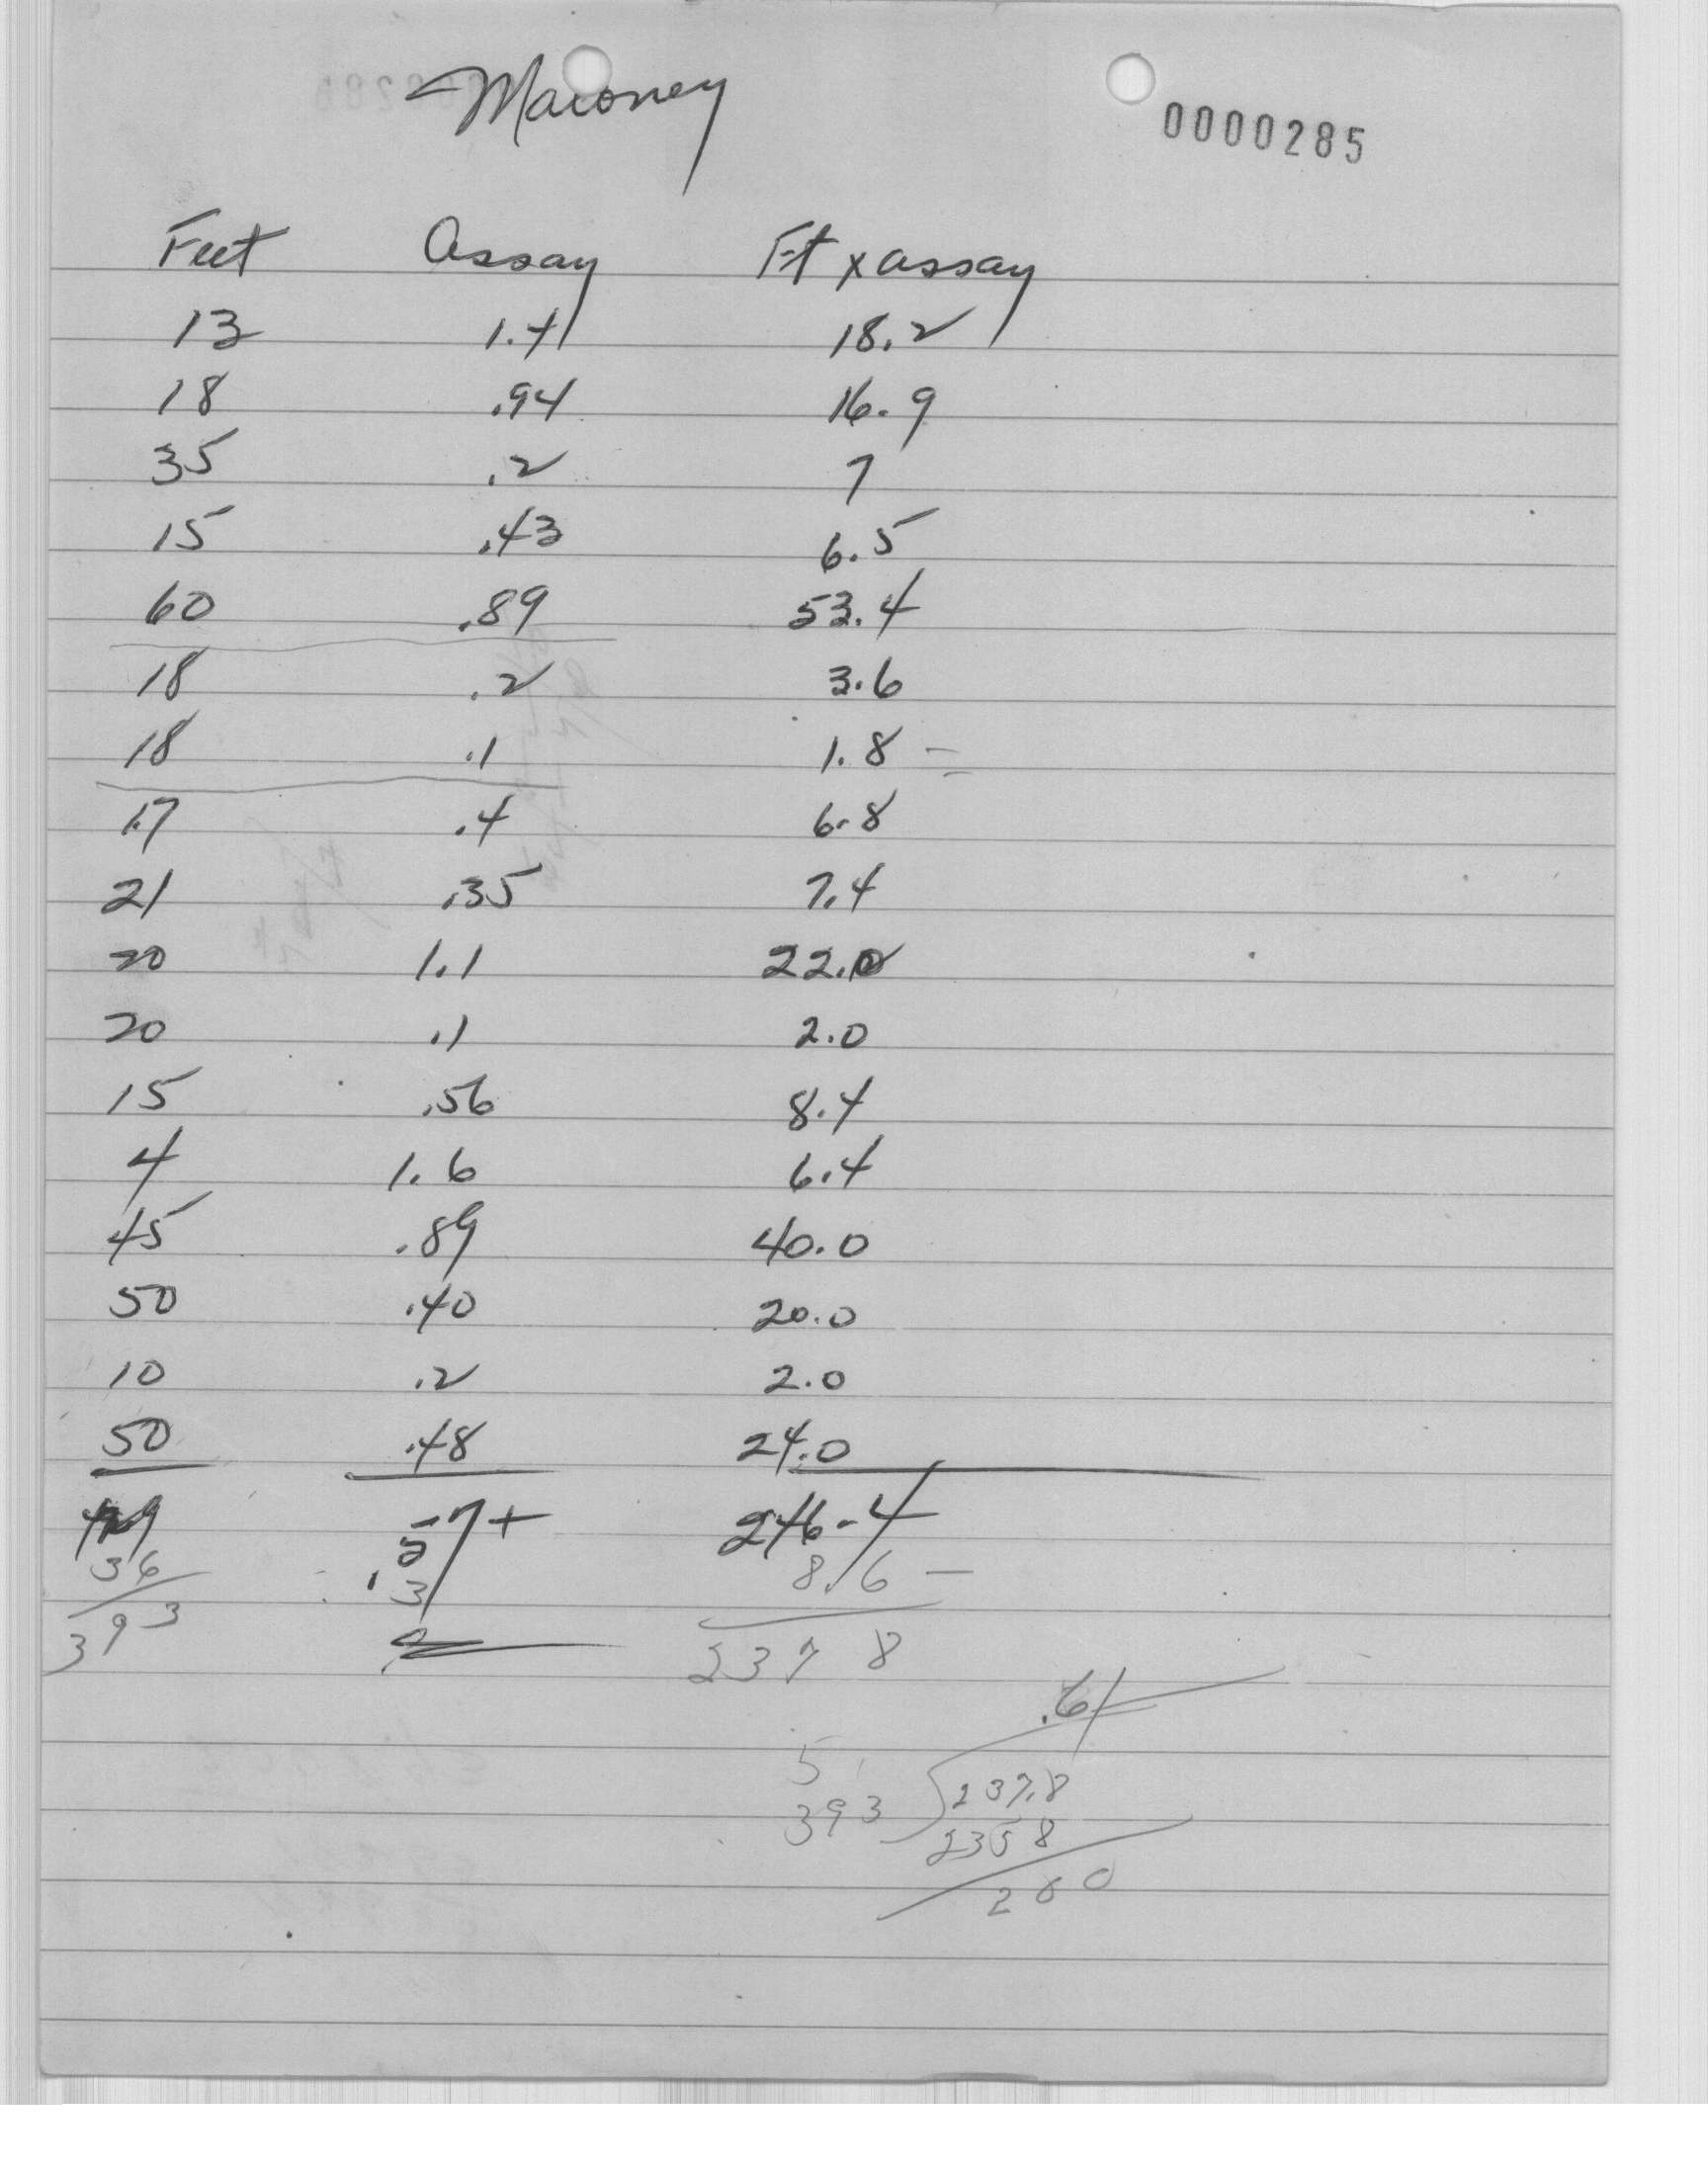 Maroney
0000285
Feet Assay Ft x assay
13 1.4 18.2
18 .94 16.9
35 .2 7
15 .43 6.5
60 .89 53.4
18 .2 3.6
18 .1 1.8 -
17 .4 6.8
21 .35 7.4
20 1.1 22.0
20 .1 2.0
15 .56 8.4
4 1.6 6.4
45 .89 40.0
50 .40 20.0
10 .2 2.0
50 .48 24.0
429 .57+ 246.4
36 8.6 -
393 237 8
.61
5
393 237.8
235 8
200